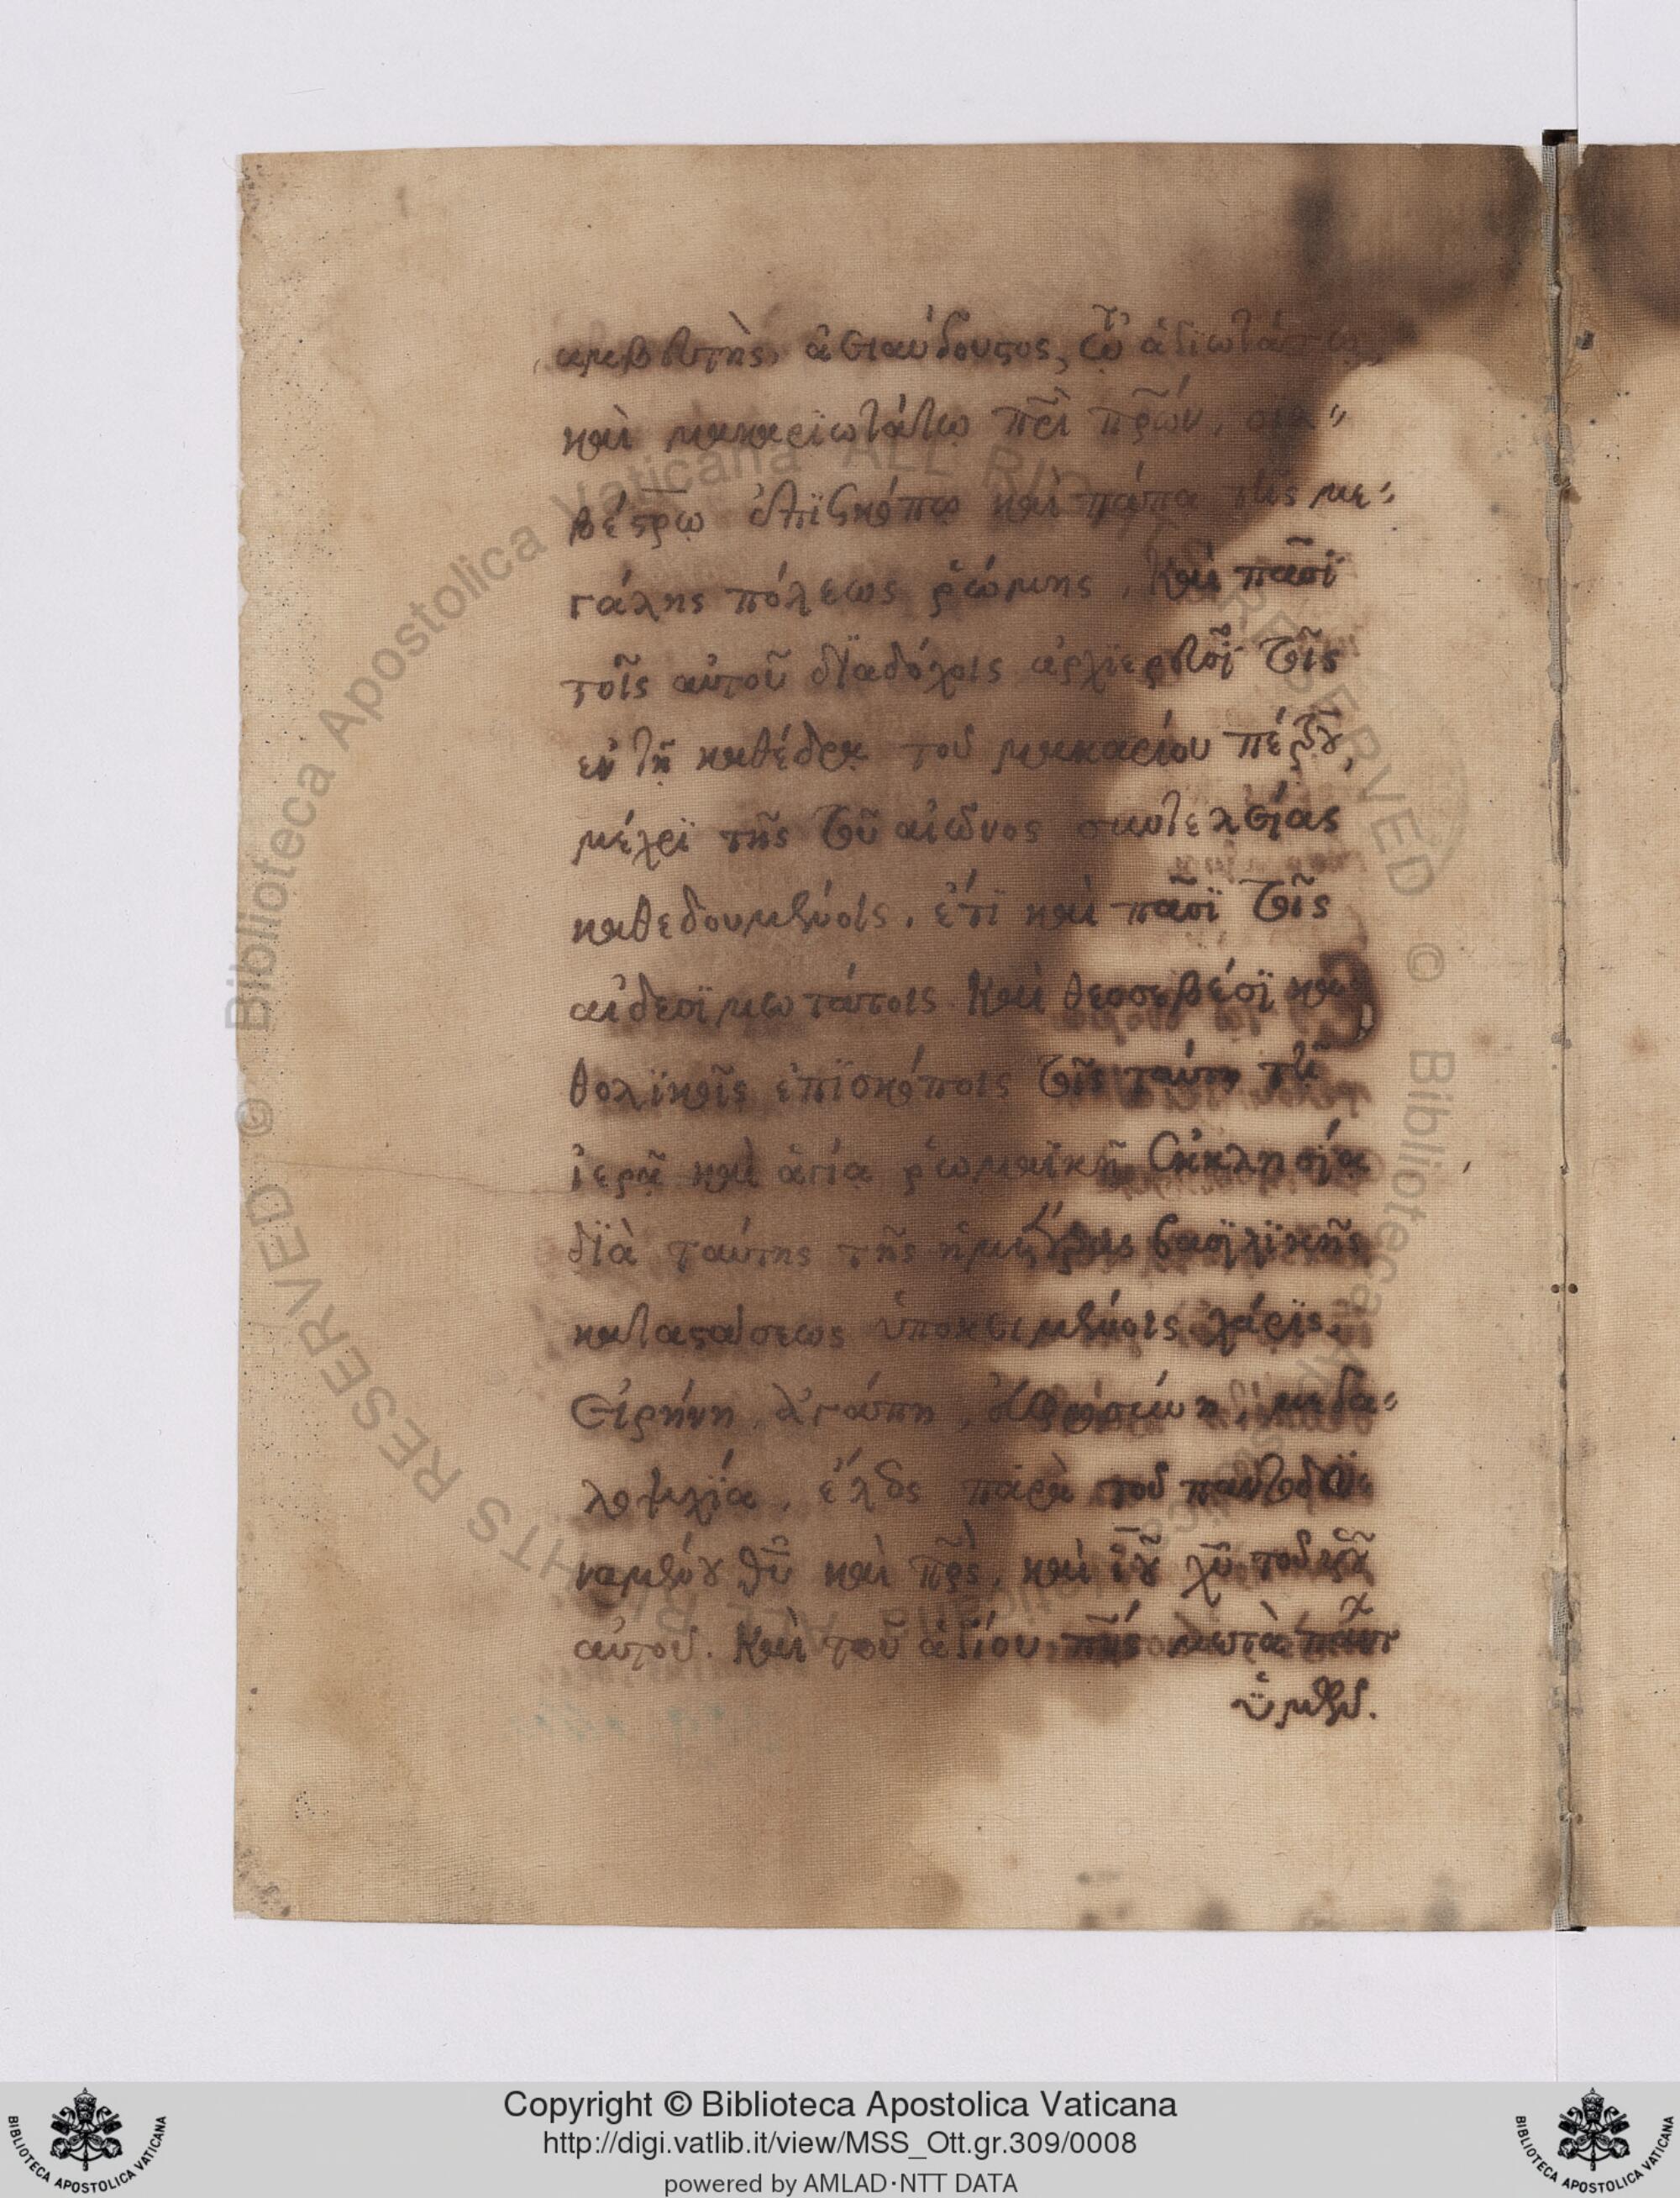 ἀειαύδουστος, τῷ ἁγιωτάτῳ
καὶ μακαρϊωτάτῳ πρὶ πρῶν, σιλ"
βέστρῳ ἐπϊσκόπῳ καὶ πάπα τῆς με"
γάλης πόλεως ῥώμης, καὶ πᾶσϊ
τοῖς αὐτοῦ δϊαδόχοις ἀρχϊερεῦσϊ τοῖς
ἐν τῇ καθέδρᾳ τοῦ μακαρίου πέτρου,
μέχρϊ τῆς τοῦ αἰῶνος συντελείας
καθεδουμένοις, ἔτϊ καὶ πᾶσϊ τοῖς
αἰδεσϊμωτάτοις καὶ θεοσεβέσϊ κα
θολϊκοῖς ἐπϊσκόποις τοῖς ταύτη τῇ
ἱερᾷ καὶ ἁγίᾳ ῥωμαϊκῇ ἐκκλησίᾳ
δϊὰ ταύτης τῆς ἡμετέρας βασϊλϊκῆς
καταστάσεως ὑποκειμένοις χάρϊς,
εἰρήνη, ἀγάπη, εὐφροσύνη, μεγα"
λοψυχία, ἔλεος παρὰ τοῦ παντοδυ
ναμένου θῦ καὶ πρς, καὶ ἰῦ χῦ τοῦ υἱοῦ
αὐτοῦ. καὶ τοῦ ἁγίου πνς μετὰ πάντ
ὑμῶν.
Copyright © Biblioteca Apostolica Vaticana
http://digi.vatlib.it/view/MSS_Ott.gr.309/0008
powered by AMLAD·NTT DATA
BIBLIOTECA APOSTOLICA VATICANA
BIBLIOTECA APOSTOLICA VATICANA
© Biblioteca Apostolica Vaticana ALL RIGHTS RESERVED © Biblioteca Apostolica Vaticana ALL RIGHTS RESERVED